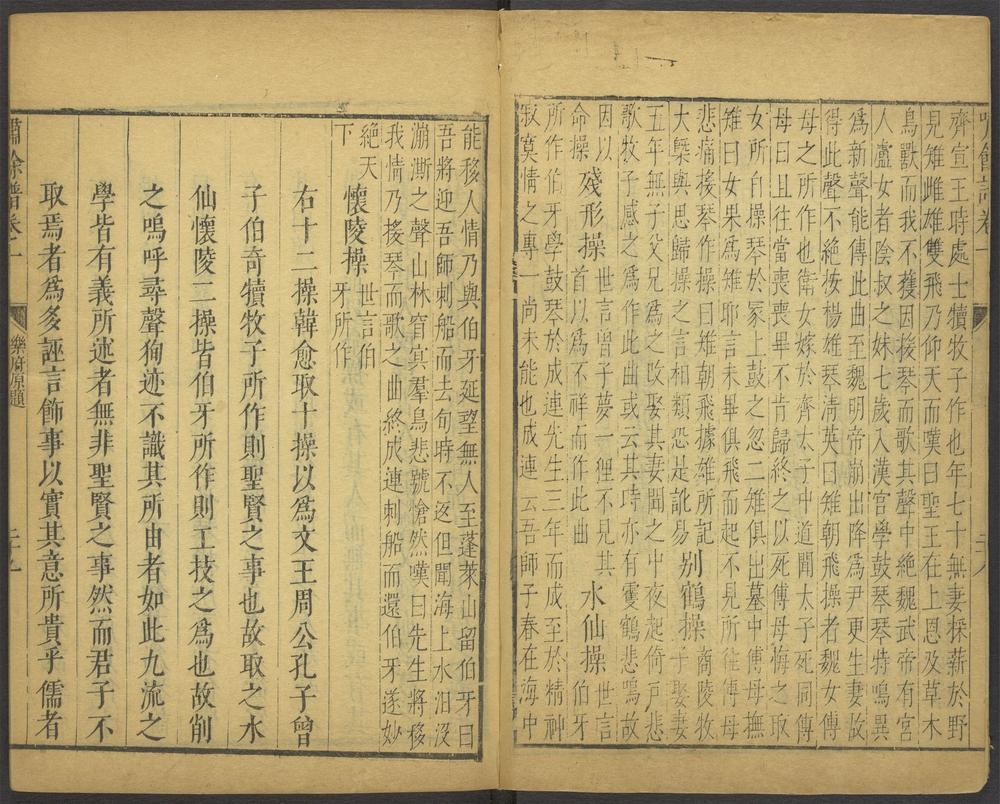 齊宣王時處士犢牧子作也年七十無妻採薪於野
見雉雌雄雙飛乃仰天而嘆曰聖王在上恩及草木
鳥獸而我不獲因援琴而歌其聲中絶魏武帝有宮
人盧女者陰叔之妹七歲入漢宮學鼓琴琴特鳴異
爲新聲能傳此曲至魏明帝崩出降爲尹更生妻故
得此聲不絶按楊雄琴清英曰雉朝飛操者魏女傳
母之所作也衛女嫁於齊太子中道聞太子死同傳
母曰且往當喪喪畢不肯歸終之以死傅母悔之取
女所自操琴於冢上鼓之忽二雉俱出墓中傅母撫
雉曰女果爲雉耶言未畢俱飛而起不見所往傅母
悲痛援琴作操曰雉朝飛據雄所記 别鶴操 商陵牧
大槩與思歸操之言相類恐是訛易 子娶妻
五年無子父兄爲之改娶其妻聞之中夜起倚戸悲
歌牧子感之爲作此曲或云其時亦有䨥鶴悲鳴故
因以 殘形操 世言曽子夢一狸不見其 水仙操 世言
命操 首以爲不祥而作此曲 伯牙
所作伯牙學鼓琴於成連先生三年而成至於精神
寂寞情之專一尚未能也成連云吾師子春在海中
能移人情乃與伯牙延望無人至蓬萊山留伯牙曰
吾將迎吾師刺船而去旬時不返但聞海上水汩沒
漰澌之聲山林窅冥羣鳥悲號愴然嘆曰先生將移
我情乃援琴而歌之曲終成連刺船而還伯牙遂妙
絶天 懷陵操 世言伯
下 牙所作
右十二操韓愈取十操以爲文王周公孔子曽
子伯奇犢牧子所作則聖賢之事也故取之水
仙懷陵二操皆伯牙所作則工技之爲也故削
之嗚呼尋聲狥迹不識其所由者如此九流之
學皆有義所述者無非聖賢之事然而君子不
取焉者爲多誣言飾事以實其意所貴乎儒者
餘譜卷一 樂府原題